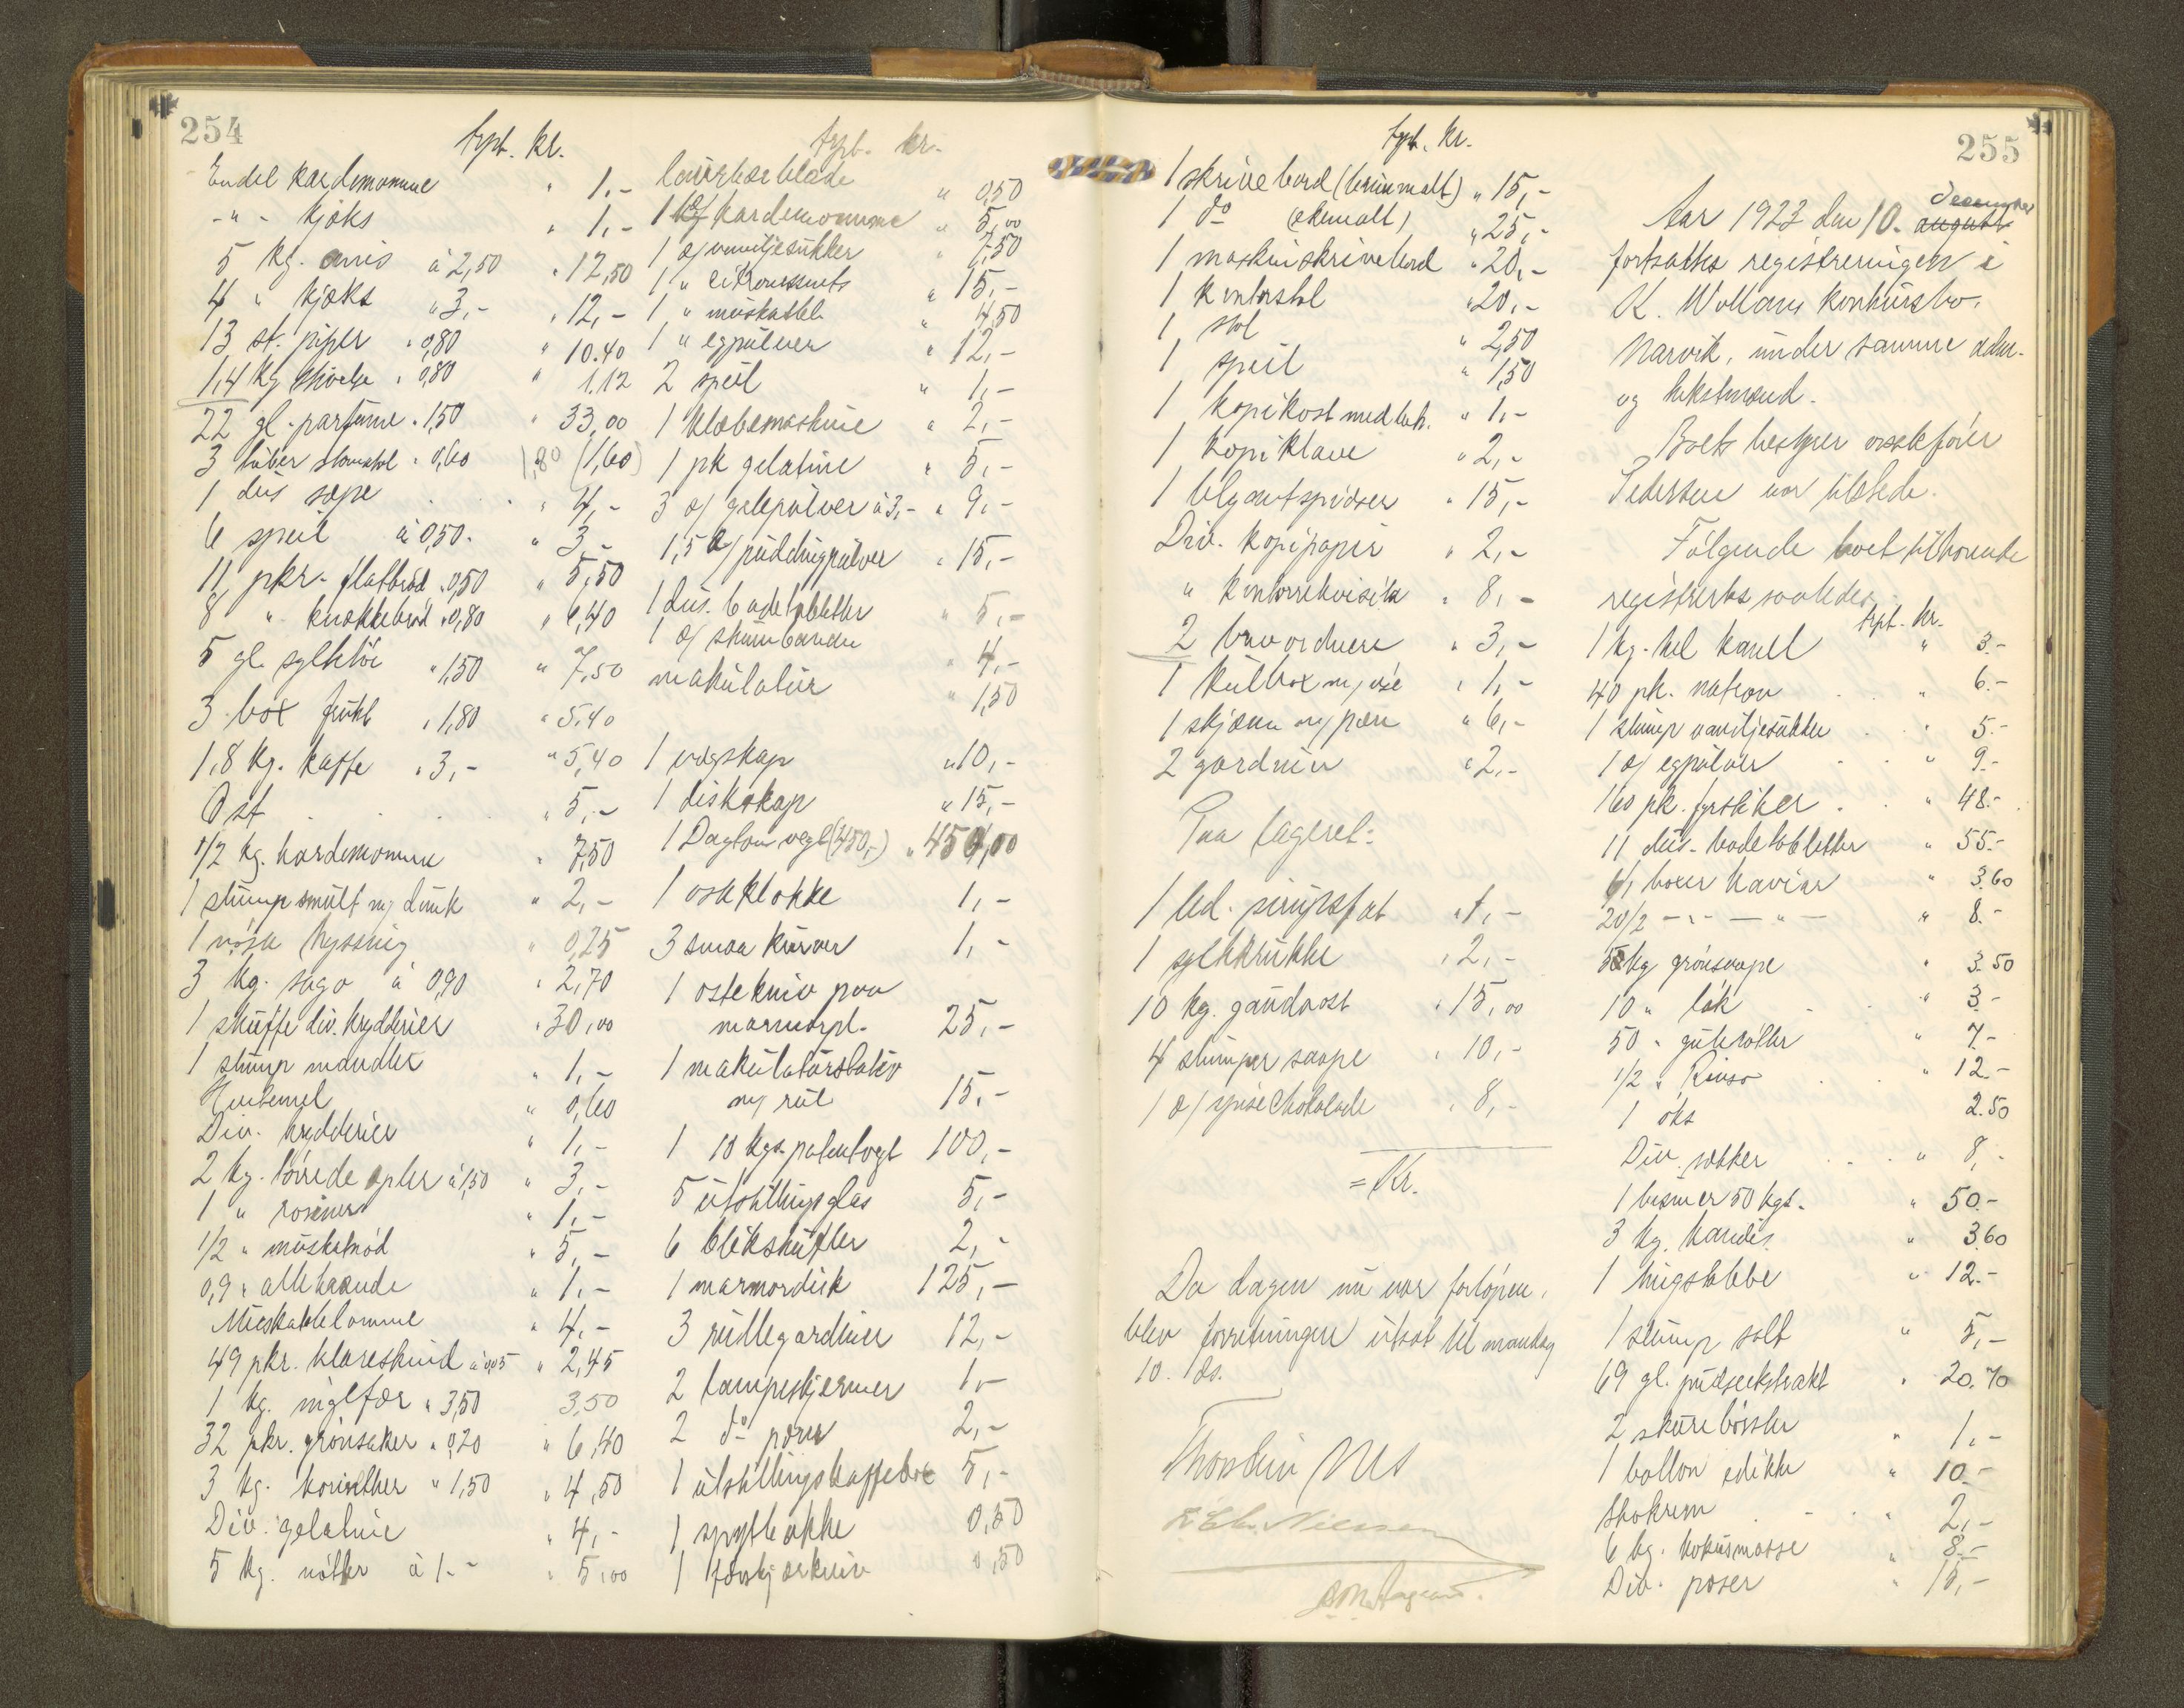 254
trpt. kr.
Endel kardemomme " 1,-
-"- kjæks " 1,-
5 kg. anis à 2,50 " 12,50
4 " kjæks " 3,- " 12,-
13 st. piper " 0,80 " 10.40
1,4 kg stivelse " 0,80 " 1.12
22 gl. parfume " 1,50 " 33,00
3 tuber " 0,60 1,80 (1,60)
1 dus sæpe . . " 4,-
6 speil à 0,50 " 3,-
11 pkr. flatbrød " 0,50 " 5,50
8 " knækkebrød " 0,80 " 6,40
5 gl. syltetøi " 1,50 " 7,50
3 box frukt " 1,80 " 5,40
1,8 kg. kaffe " 3,- " 5,40
Ost . . . . " 5,-
1/2 kg. kardemomme " 7,50
1 stump smult m/ dunk " 2,-
1 nøste hyssing " 0,25
3 kg. sago à 0,90 " 2,70
1 skuffe div. krydderier " 30,00
1 stump mandler " 1,-
" 0,60
Div. krydderier " 1,-
2 kg. tørrede epler à 1,50 " 3,-
1 " rosiner " 1,-
1/2 " muskatnød " 5,-
0,9 " allehaande " 1,-
Muskatblomme " 4,-
49 pkr. klareskind à 0,05 " 2,45
1 kg. " 3,50 3,50
32 pkr. grønsaker " 0,20 " 6,40
3 kg. korinther " 1,50 " 4,50
Div. gelatine " 4,-
5 kg. nøtter à 1.- " 5,00
trpt. kr.
laurbærblade " 0,50
1 kardemomme " 5,00
1 æ/ vaniljesukker " 7,50
1 " citronessents " 15,-
1 " muskatbl. " 4,50
1 " egpulver " 12,-
2 speil " 1,-
1 klæbemaskine " 2,-
1 pk gelatine " 5,-
3 æ/ gelepulver à 3,- " 9,-
1,5 æ/ puddingpulver " 15,-
1 dus. badetabletter " 5,-
1 æ/ skumbanan " 4,-
makulatur " 1,50
1 vægskap " 10,-
1 diskskap " 15,-
1 Dayton vegt (450,-) " 450,00
1 osteklokke 1,-
3 smaa kurver 1,-
1 ostekniv paa
marmorpl. 25,-
1 makulaturstativ
m/ rul 15,-
1 10 kgs. patentvegt 100,-
5 utstillingsglas 5,-
6 blikskuffer 2,-
1 marmordisk 125,-
3 rullegardiner 12,-
2 lampeskjermer 1,-
2 do pærer 2,-
1 utstillingskaffebox 5,-
1 spyttbakke 0,50
1 0,50
trpt. kr.
1 skrivebord (brunmalt) " 15,-
1 do (ekemalt) " 25,-
1 maskinskrivebord " 20,-
1 kontorstol " 20,-
1 stol " 2,50
1 speil " 1,50
1 kopikost med beh. " 1,-
1 kopiklave " 2,-
1 blyantspidser " 15,-
Div. kopipapir " 2,-
" kontorrekvisita " 8,-
2 brevordnere " 3,-
1 kulbox m/ øse " 1,-
1 skjærm m/ pære " 6,-
2 gardiner " 2,-
Paa lageret:
1 led. sirupsfat " 1,-
1 syltekrukke " 2,-
10 kg. gaudaost " 15,00
4 stumper saape " 10,-
1 æ/ spisechokolade " 8,-
= Kr.
Da dagen nu var forløpen,
blev forretningen utsat til mandag
10. ds.
255
Aar 1923 den 10. august december
fortsattes registreringen i
K. Wollans konkursbo,
Narvik, under samme adm.
og takstmænd.
Boets bestyrer overretssakfører
Pedersen var tilstede.
Følgende boet tilhørende
registrertes saaledes
trpt. kr.
1 kg. hel kanel " 3.-
40 pk. natron . . " 6.-
1 stump vaniljesukker . " 5.-
1 æ/ egpulver . . " 9.-
160 pk. fyrstiker . . " 48.-
11 dus. badetabletter " 55.-
6/1 boxer kaviar " 3.60
20/2 -"- -"- " 8.-
5 kg grønsaape " 3.50
10 " løk . . " 3.-
50 " gulerøtter " 7.-
1/2 " Rinso . . " 12.-
1 øks 2.50
Div. sækker . . " 8,-
1 bismer 50 kgs. " 50.-
3 kg. kandis " 3.60
1 hugstabbe " 12.-
1 stump salt " 5,-
69 gl. pudseekstrakt " 20.70
2 skurebørster " 1.-
1 ballon edikke " 10.-
Skokrem . . . " 2,-
6 kg. kokusmasse " 8.-
Div. poser " 15,-